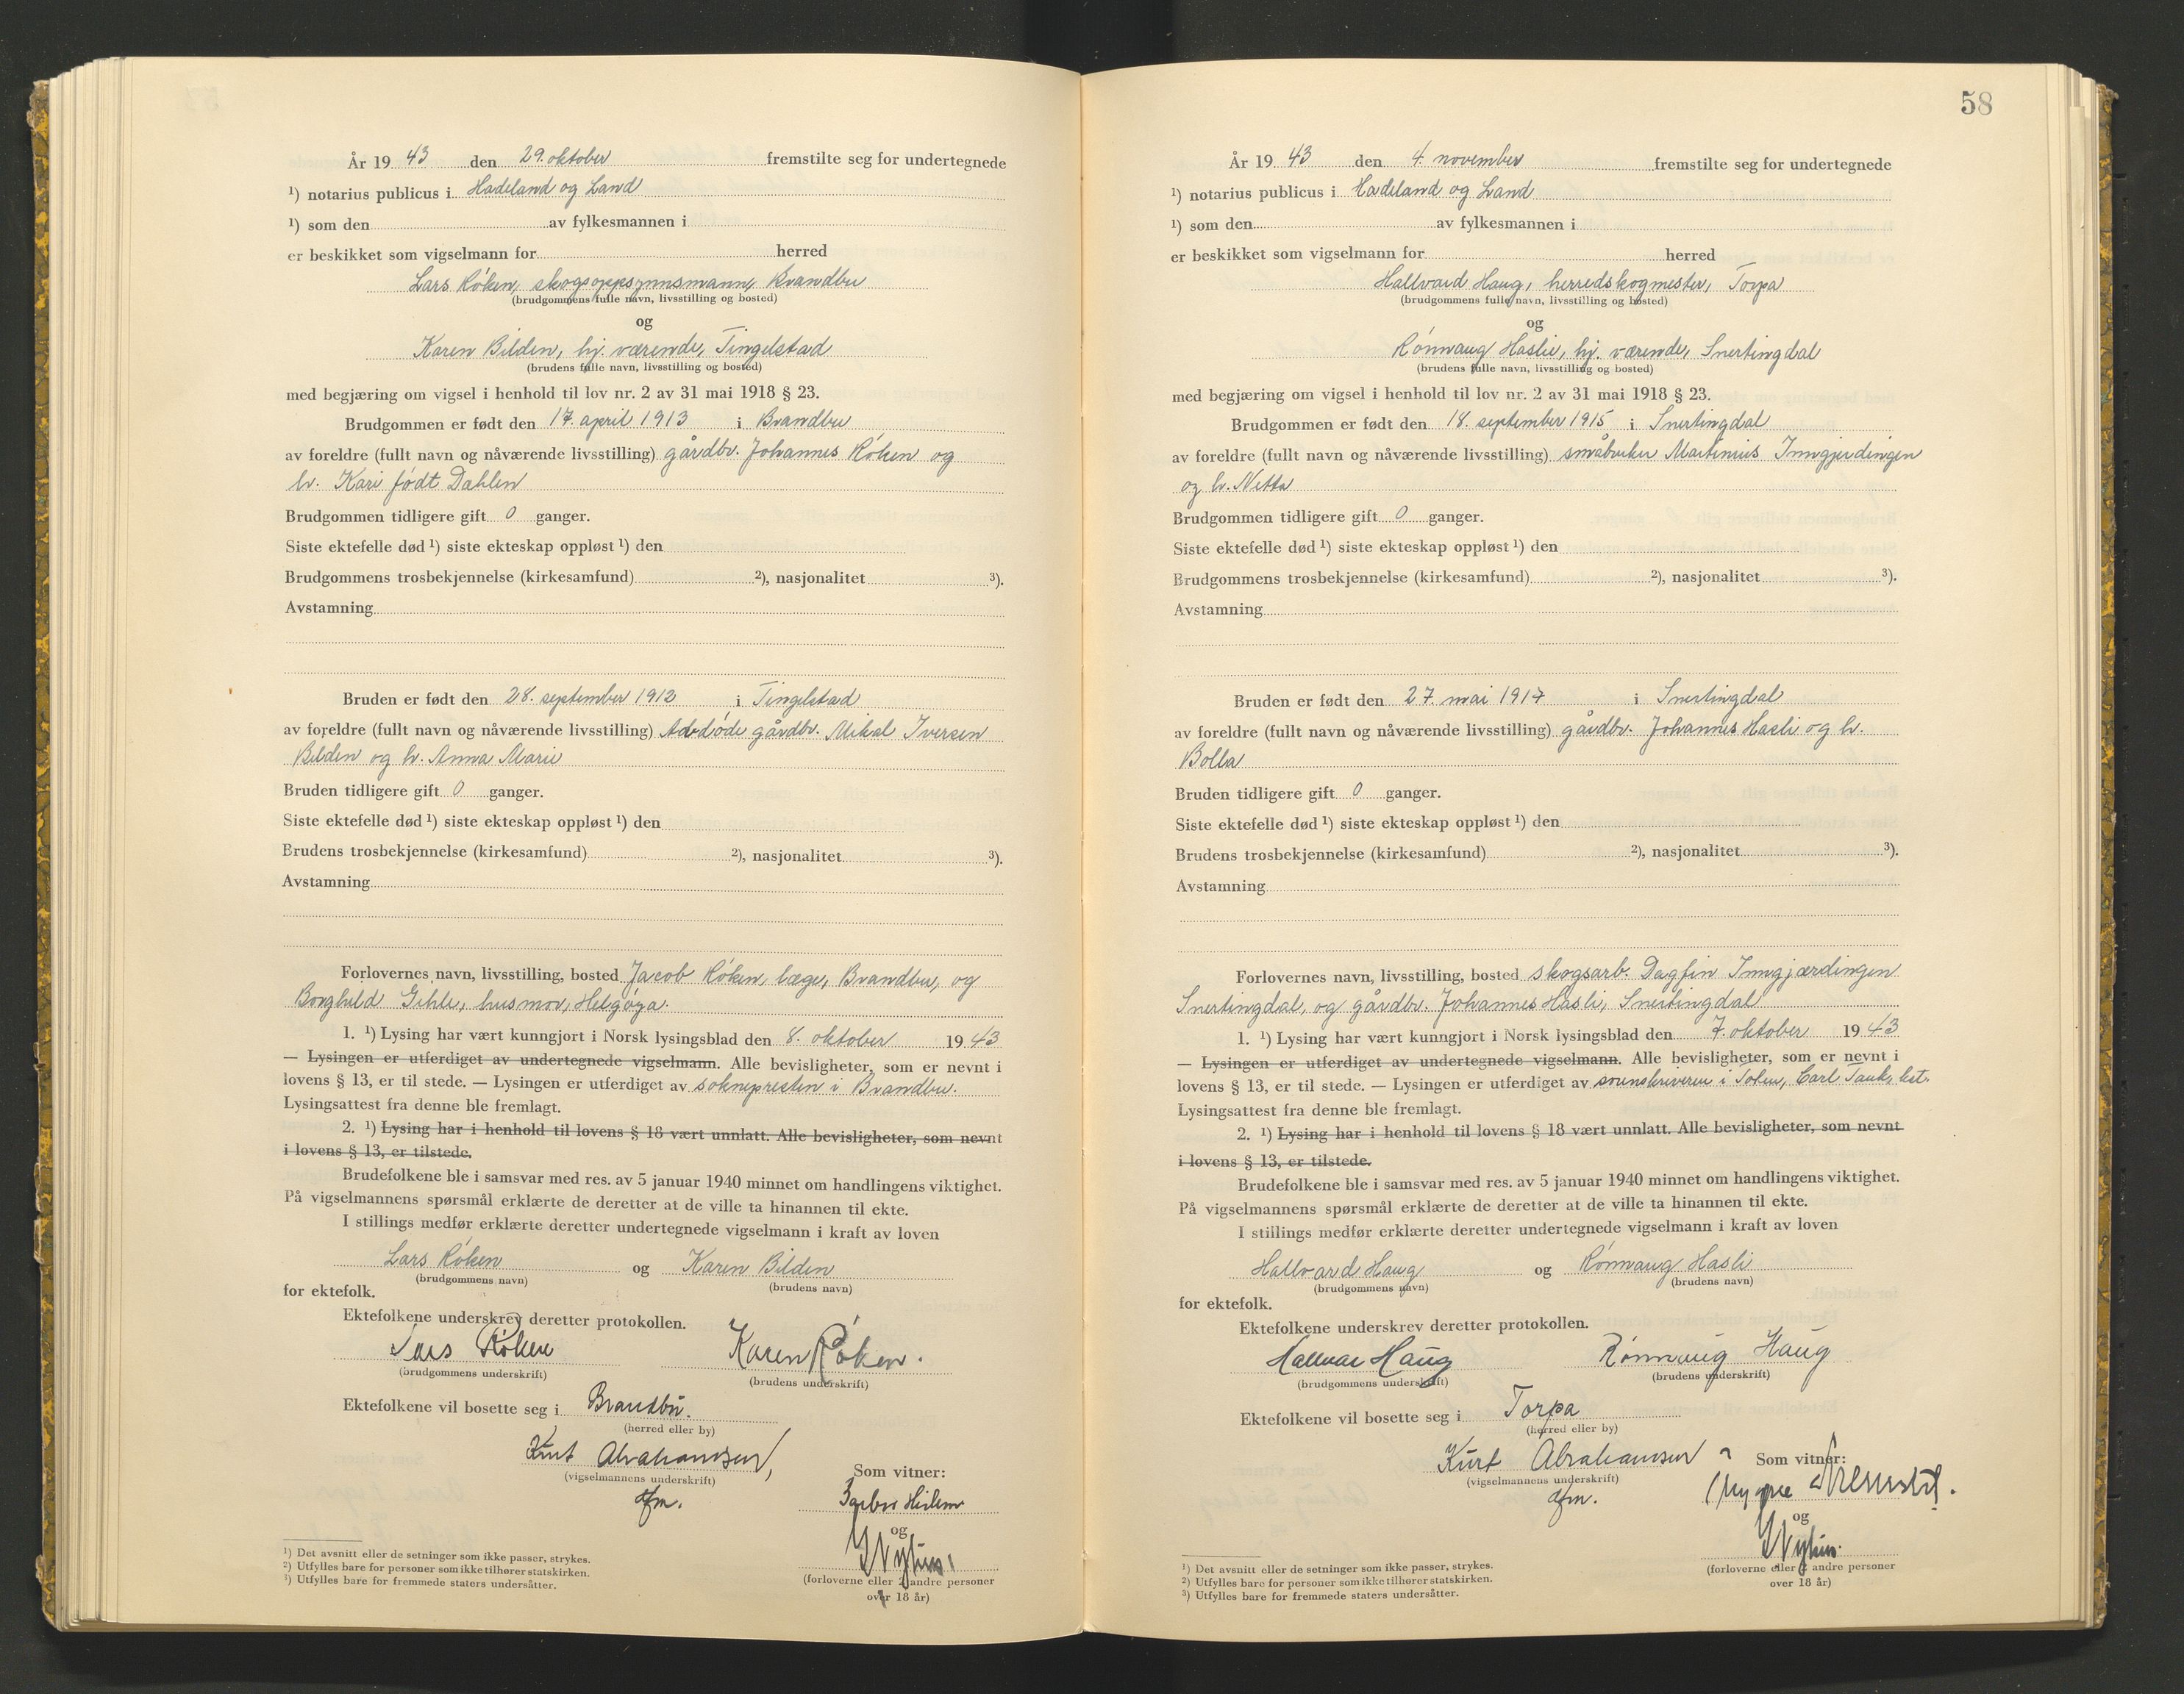 År 19 43 den 29. oktober fremstilte seg for undertegnede
¹) notarius publicus i Hadeland og Land
¹) som den av fylkesmannen i
er beskikket som vigselmann for herred
Lars Røken, skogsoppsynnsmann, Brandbu
(brudgommens fulle navn, livsstilling og bosted)
og
Karen Bilden, hj. værende, Tingelstad
(brudens fulle navn, livsstilling og bosted)
med begjæring om vigsel i henhold til lov nr. 2 av 31 mai 1918 § 23.
Brudgommen er født den 17. april 1913 i Brandbu
av foreldre (fullt navn og nåværende livsstilling) gårdbr. Johannes Røken og
h. Kari født Dahlen
Brudgommen tidligere gift 0 ganger.
Siste ektefelle død ¹) siste ekteskap oppløst ¹) den
Brudgommens trosbekjennelse (kirkesamfund) ²), nasjonalitet ³).
Avstamning
Bruden er født den 28. september 1912 i Tingelstad
av foreldre (fullt navn og nåværende livsstilling) Avdøde gårdbr. Mikal Iversen
Bilden og h. Anna Marie
Bruden tidligere gift 0 ganger.
Siste ektefelle død ¹) siste ekteskap oppløst ¹) den
Brudens trosbekjennelse (kirkesamfund) ²), nasjonalitet ³).
Avstamning
Forlovernes navn, livsstilling, bosted Jacob Røken, læge, Brandbu, og
Borghild Gihle, husmor, Helgøya.
1. ¹) Lysing har vært kunngjort i Norsk lysingsblad den 8. oktober 19 43
— Lysingen er utferdiget av undertegnede vigselmann. Alle bevisligheter, som er nevnt i
lovens § 13, er til stede. — Lysingen er utferdiget av soknepresten i Brandbu.
Lysingsattest fra denne ble fremlagt.
2. ¹) Lysing har i henhold til lovens § 18 vært unnlatt. Alle bevisligheter, som nevnt
i lovens § 13, er tilstede.
Brudefolkene ble i samsvar med res. av 5 januar 1940 minnet om handlingens viktighet.
På vigselmannens spørsmål erklærte de deretter at de ville ta hinannen til ekte.
I stillings medfør erklærte deretter undertegnede vigselmann i kraft av loven
Lars Røken og Karen Bilden
(brudgommens navn) (brudens navn)
for ektefolk.
Ektefolkene underskrev deretter protokollen.
Lars Røken Karen Røken.
(brudgommens underskrift) (brudens underskrift)
Ektefolkene vil bosette seg i Brandbu.
(herred eller by)
Kurt Abrahamsen,
(vigselmannens underskrift)
dfm.
Som vitner:
og
(forloverne eller 2 andre personer
over 18 år)
¹) Det avsnitt eller de setninger som ikke passer, strykes.
²) Utfylles bare for personer som ikke tilhører statskirken.
³) Utfylles bare for fremmede staters undersåtter.
58
År 19 43 den 4. november fremstilte seg for undertegnede
¹) notarius publicus i Hadeland og Land
¹) som den av fylkesmannen i
er beskikket som vigselmann for herred
Hallvard Haug, herredskogmester, Torpa
(brudgommens fulle navn, livsstilling og bosted)
og
Rønnaug Haslie, hj. værende, Snertingdal
(brudens fulle navn, livsstilling og bosted)
med begjæring om vigsel i henhold til lov nr. 2 av 31 mai 1918 § 23.
Brudgommen er født den 18. september 1915 i Snertingdal
av foreldre (fullt navn og nåværende livsstilling) småbruker Martinius Inngjerdingen
og h. Netta
Brudgommen tidligere gift 0 ganger.
Siste ektefelle død ¹) siste ekteskap oppløst ¹) den
Brudgommens trosbekjennelse (kirkesamfund) ²), nasjonalitet ³).
Avstamning
Bruden er født den 27. mai 1917 i Snertingdal
av foreldre (fullt navn og nåværende livsstilling) gårdbr. Johannes Hasli og h.
Bolla
Bruden tidligere gift 0 ganger.
Siste ektefelle død ¹) siste ekteskap oppløst ¹) den
Brudens trosbekjennelse (kirkesamfund) ²), nasjonalitet ³).
Avstamning
Forlovernes navn, livsstilling, bosted skogsarb. Dagfin Inngjærdingen
Snertingdal, og gårdbr. Johannes Hasli, Snertingdal
1. ¹) Lysing har vært kunngjort i Norsk lysingsblad den 7. oktober 19 43
— Lysingen er utferdiget av undertegnede vigselmann. Alle bevisligheter, som er nevnt i
lovens § 13, er til stede. — Lysingen er utferdiget av sorenskriveren i Toten, Carl Tank, kst.
Lysingsattest fra denne ble fremlagt.
2. ¹) Lysing har i henhold til lovens § 18 vært unnlatt. Alle bevisligheter, som nevnt
i lovens § 13, er tilstede.
Brudefolkene ble i samsvar med res. av 5 januar 1940 minnet om handlingens viktighet.
På vigselmannens spørsmål erklærte de deretter at de ville ta hinannen til ekte.
I stillings medfør erklærte deretter undertegnede vigselmann i kraft av loven
Hallvard Haug og Rønnaug Hasli
(brudgommens navn) (brudens navn)
for ektefolk.
Ektefolkene underskrev deretter protokollen.
Hallvar Haug Rønnaug Haug
(brudgommens underskrift) (brudens underskrift)
Ektefolkene vil bosette seg i Torpa
(herred eller by)
Kurt Abrahamsen
(vigselmannens underskrift)
dfm.
Som vitner:
og
(forloverne eller 2 andre personer
over 18 år)
¹) Det avsnitt eller de setninger som ikke passer, strykes.
²) Utfylles bare for personer som ikke tilhører statskirken.
³) Utfylles bare for fremmede staters undersåtter.